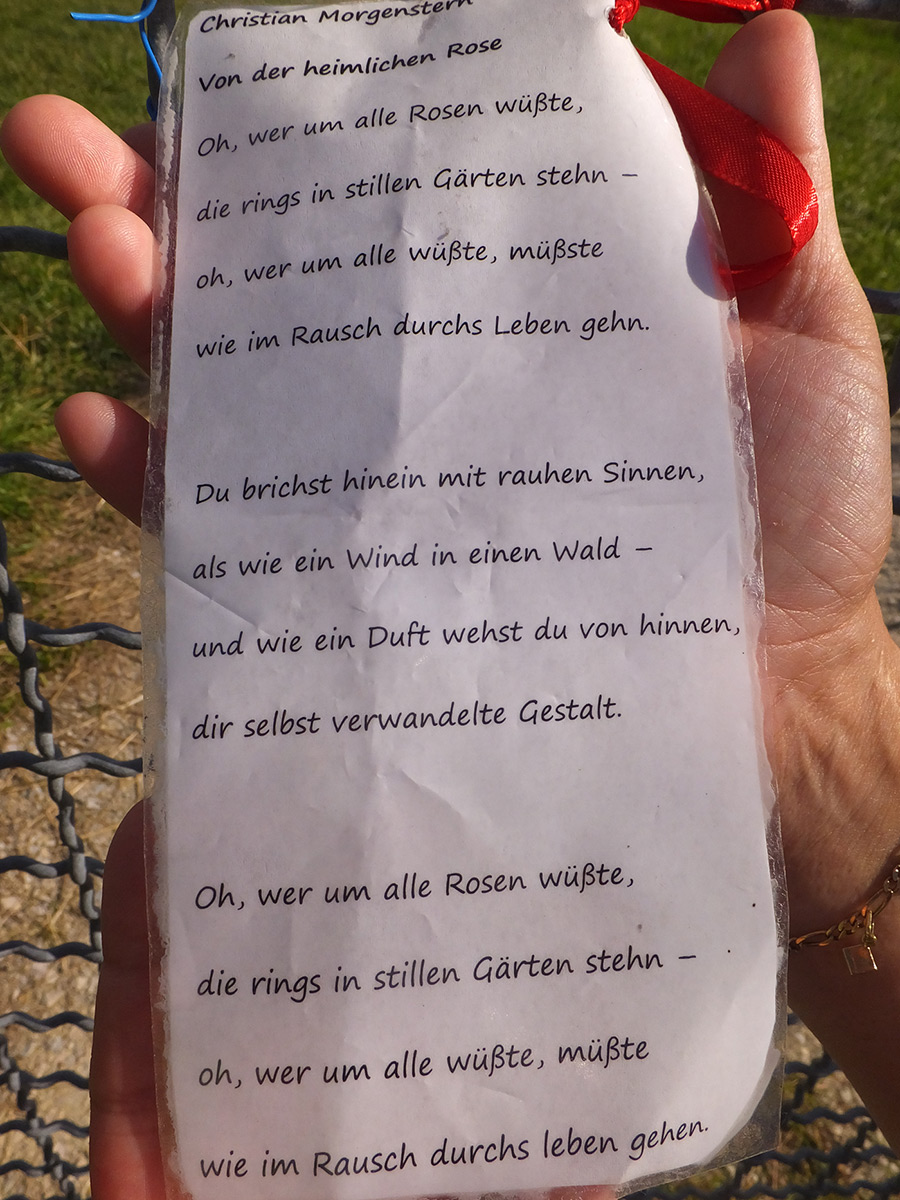 Christian Morgenstern
Von der heimlichen Rose
Oh, wer um alle Rosen wüßte,
die rings in stillen Gärten stehn –
oh, wer um alle wüßte, müßste
wie im Rausch durchs Leben gehn.
Du brichst hinein mit rauhen Sinnen,
als wie ein Wind in einen Wald –
und wie ein Duft wehst du von hinnen,
dir selbst verwandelte Gestalt.
Oh, wer um alle Rosen wüßte,
die rings in stillen Gärten stehn –
oh, wer um alle wüßte, müßte
wie im Rausch durchs leben gehen.